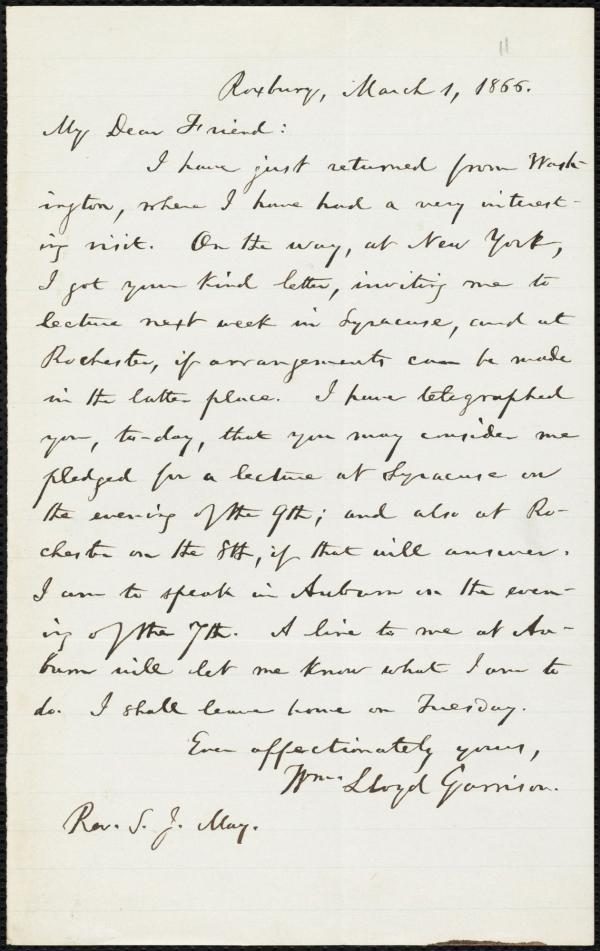 11
Roxbury, March 1, 1866.
My Dear Friend:
I have just returned from Wash-
ington, where I have had a very interest-
ing visit. On the way, at New York,
I got your kind letter, inviting me to
lecture next week in Syracuse, and at
Rochester, if arrangements can be made
in the latter place. I have telegraphed
you, to-day, that you may consider me
pledged for a lecture at Syracuse on
the evening of the 9th; and also at Ro-
chester on the 8th, if that will answer.
I am to speak in Auburn on the even-
ing of the 7th. A line to me at Au-
burn will let me know what I am to
do. I shall leave home on Tuesday.
Ever affectionately yours,
Wm. Lloyd Garrison.
Rev. S. J. May.